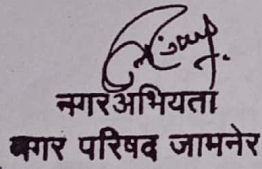 नगरअभियता
नगर परिषद जामनेर